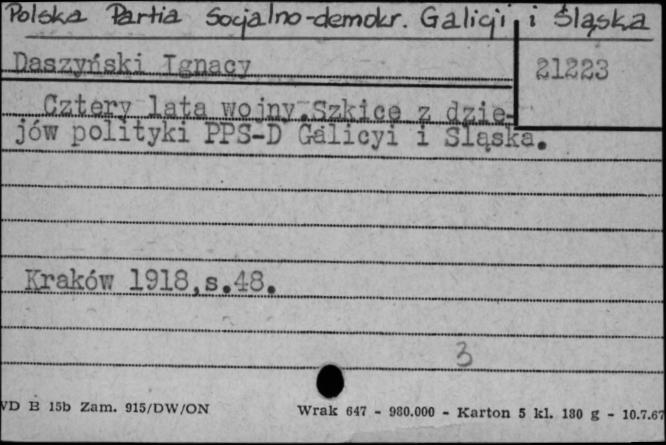 Polska Partia Socjalno-demokr. Galicji i Śląska
Daszyński Ignacy
21223
Cztery lata wojny.Szkice z dzie-
jów polityki PPS-D Galicyi i Śląska.
Kraków 1918,s.48.
3
VD B 15b Zam. 915/DW/ON
Wrak 647 - 980.000 - Karton 5 kl. 180 g - 10.7.67